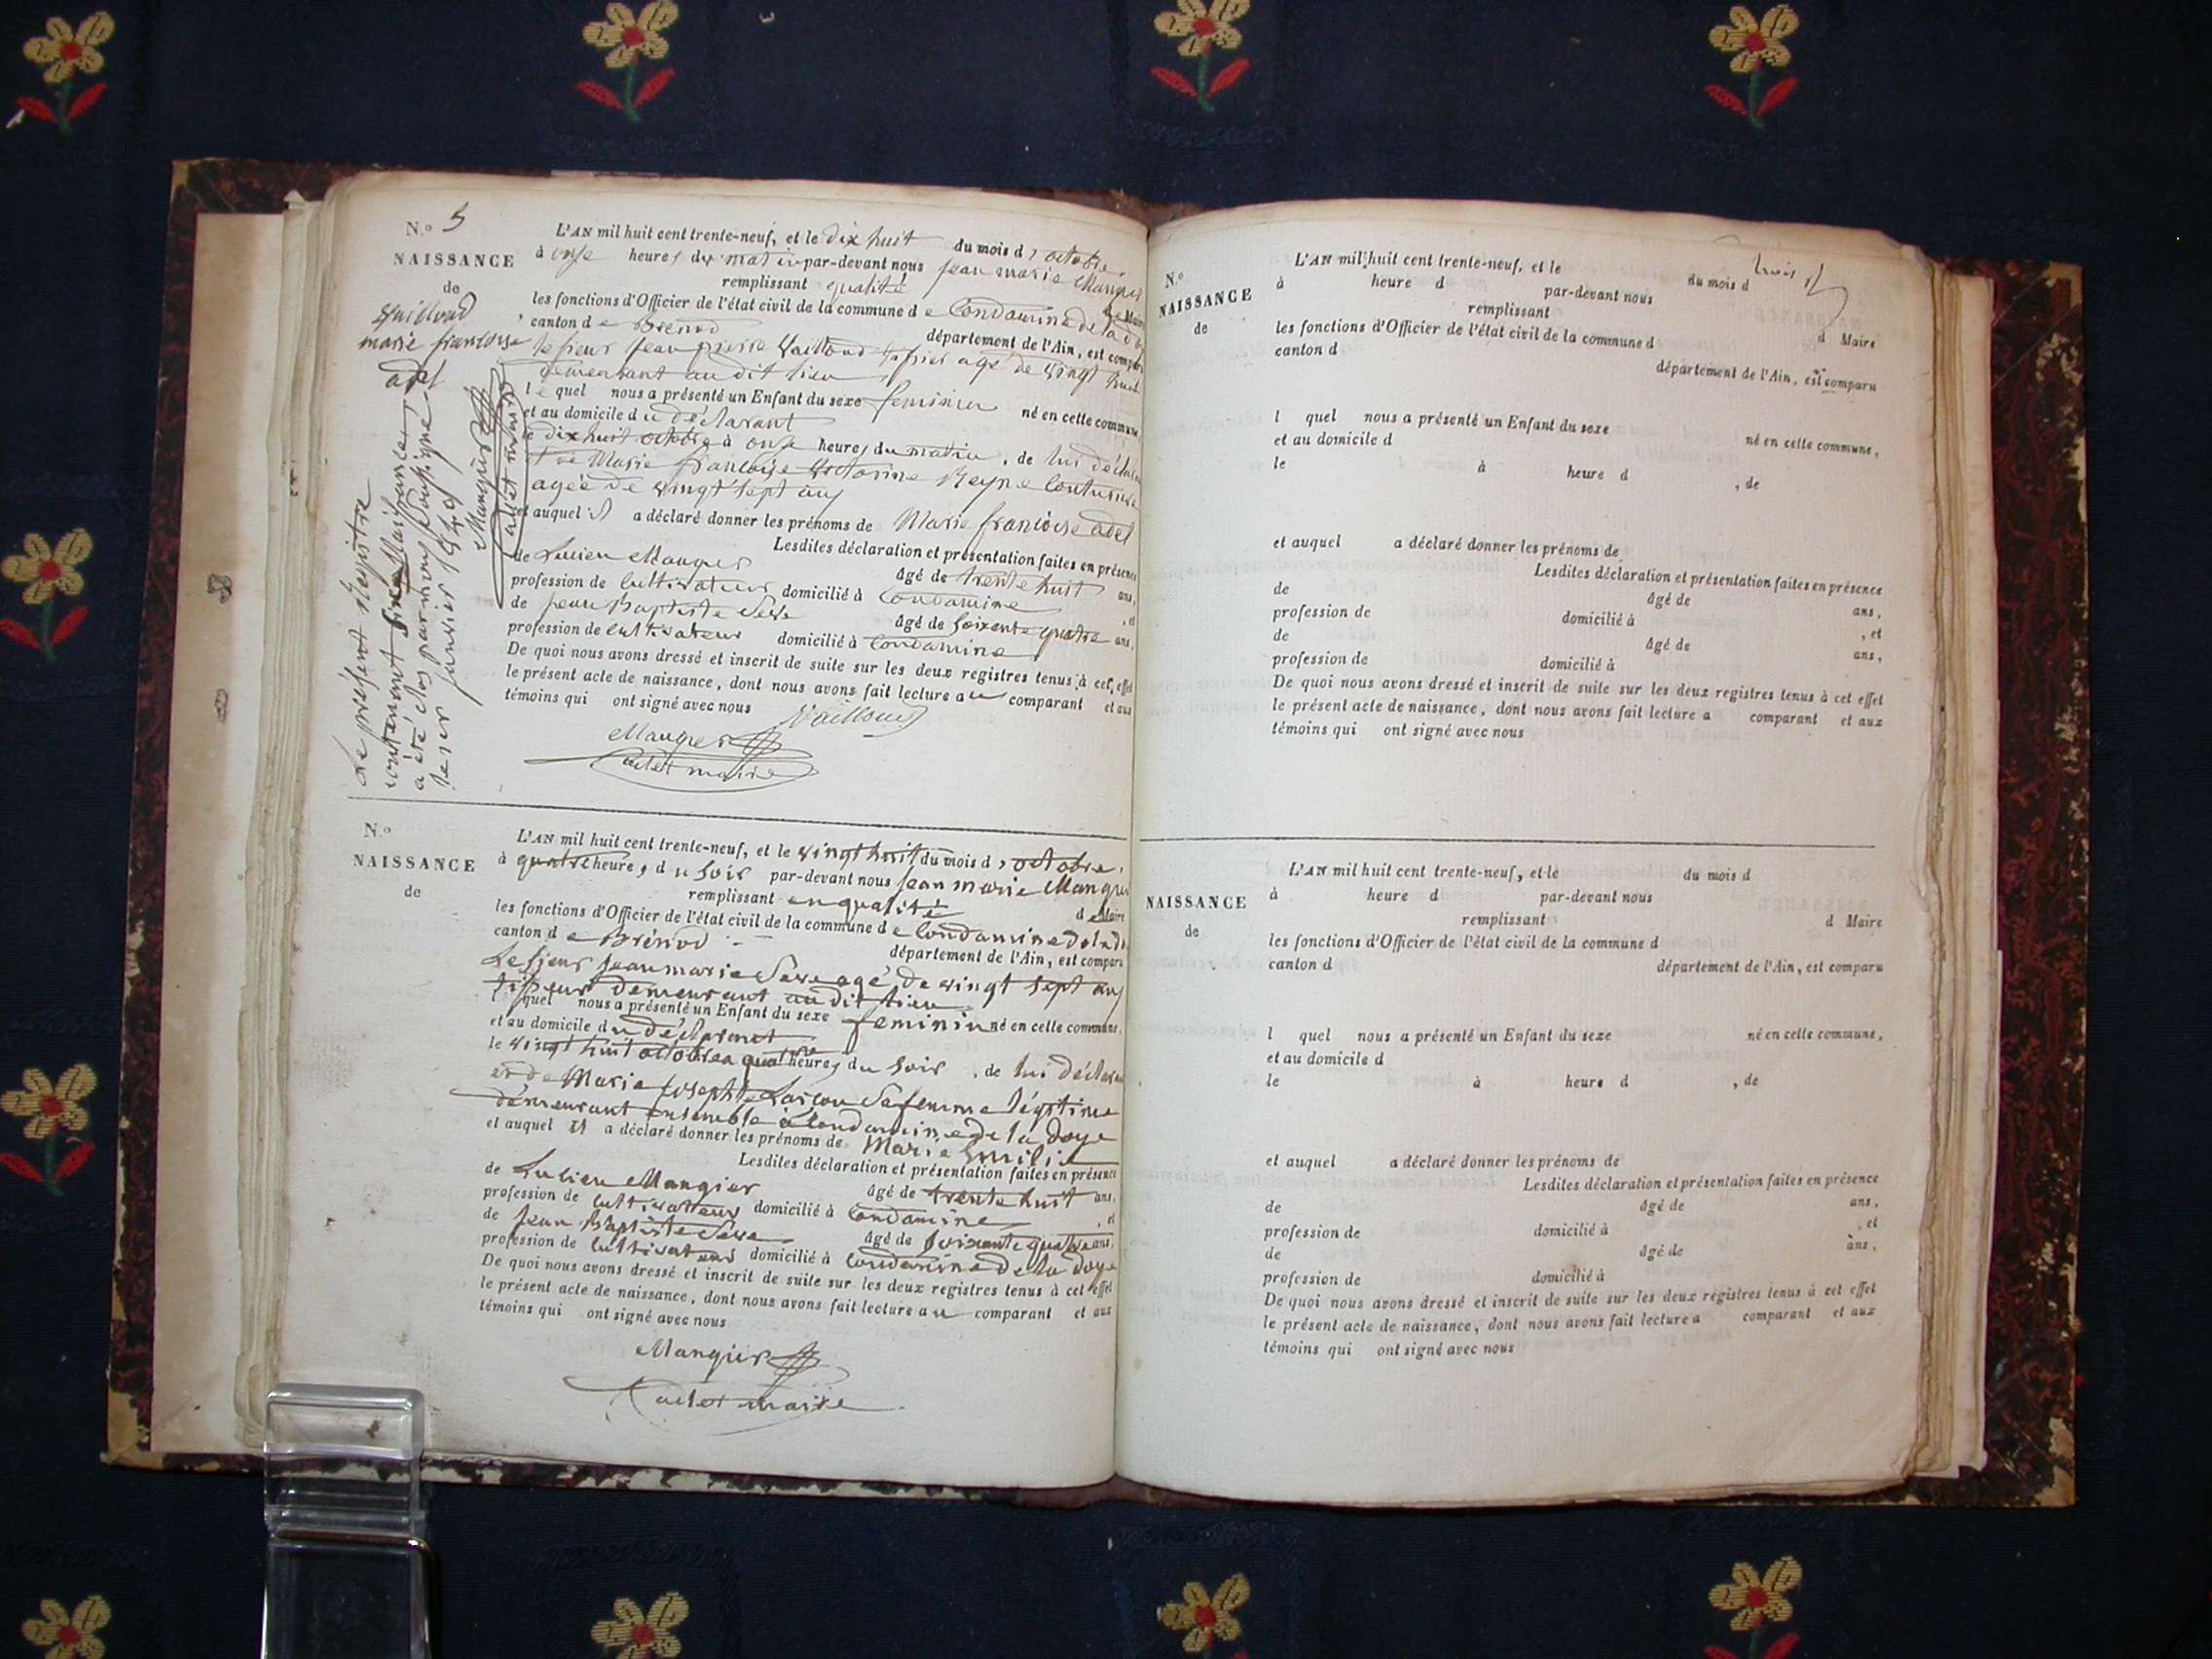 N.o 5
NAISSANCE
de
Vailloud
marie françoise
adel
L'AN mil huit cent trente-neuf, et le dix huit du mois d'octobre,
à onse heures du matin par-devant nous jean marie Maugier
remplissant qualité de Maire
les fonctions d'Officier de l'état civil de la commune de Condamine de la d
canton de Brenod département de l'Ain, est comparu
le sieur jean pierre Vailloud agé de vingt huit
demeurant au dit lieu
lequel nous a présenté un Enfant du sexe feminin né en cette commune,
et au domicile du déclarant
le dix huit octobre à onse heures du matin, de lui déclarant
et de Marie françoise Victorine Reyne Couturière
agée de vingt sept ans
et auquel il a déclaré donner les prénoms de Marie françoise adel
Lesdites déclaration et présentation faites en présence
de Lucien Maugier âgé de trente huit ans,
profession de cultivateur domicilié à Condamine, et
de jean Baptiste Seve âgé de soixente quatre ans,
profession de cultivateur domicilié à Condamine
De quoi nous avons dressé et inscrit de suite sur les deux registres tenus à cet effet
le présent acte de naissance, dont nous avons fait lecture au comparant et aux
témoins qui ont signé avec nous Vailloud
Maugier
adet maire
Le présent Régistre
contenant Naissance
a été clos par nous soussigné
le 1er janvier 1840
Maugier
adet maire
N.o
NAISSANCE
de
L'AN mil huit cent trente-neuf, et le vingt huit du mois d'octobre,
à quatre heures du soir par-devant nous jean marie Maugier
remplissant en qualité de Maire
les fonctions d'Officier de l'état civil de la commune de Condamine de la d
canton de Brénod département de l'Ain, est comparu
Le sieur jean marie Seve agé de vingt sept ans
tisseur demeurant au dit lieu
lequel nous a présenté un Enfant du sexe feminin né en cette commune,
et au domicile du déclarant
le vingt huit octobre a quatre heures du soir, de lui déclarant
et de Marie josephte Lascou sa femme légitime
démeurant ensemble à Condamine de la doye
et auquel il a déclaré donner les prénoms de Marie Emilie
Lesdites déclaration et présentation faites en présence
de Lucien Maugier âgé de trente huit ans,
profession de cultivateur domicilié à Condamine, et
de jean Baptiste Seve âgé de soixante quatre ans,
profession de cultivateur domicilié à Condamine de la doye
De quoi nous avons dressé et inscrit de suite sur les deux registres tenus à cet effet
le présent acte de naissance, dont nous avons fait lecture au comparant et aux
témoins qui ont signé avec nous
Maugier
adet maire
N.o
NAISSANCE
de
L'AN mil huit cent trente-neuf, et le du mois d
à heure d par-devant nous
remplissant d Maire
les fonctions d'Officier de l'état civil de la commune d
canton d département de l'Ain, est comparu
l quel nous a présenté un Enfant du sexe né en cette commune,
et au domicile d
le à heure d , de
et auquel a déclaré donner les prénoms de
Lesdites déclaration et présentation faites en présence
de âgé de ans,
profession de domicilié à , et
de âgé de ans,
profession de domicilié à
De quoi nous avons dressé et inscrit de suite sur les deux registres tenus à cet effet
le présent acte de naissance, dont nous avons fait lecture a comparant et aux
témoins qui ont signé avec nous
NAISSANCE
de
L'AN mil huit cent trente-neuf, et le du mois d
à heure d par-devant nous
remplissant d Maire
les fonctions d'Officier de l'état civil de la commune d
canton d département de l'Ain, est comparu
l quel nous a présenté un Enfant du sexe né en cette commune,
et au domicile d
le à heure d , de
et auquel a déclaré donner les prénoms de
Lesdites déclaration et présentation faites en présence
de âgé de ans,
profession de domicilié à , et
de âgé de ans,
profession de domicilié à
De quoi nous avons dressé et inscrit de suite sur les deux registres tenus à cet effet
le présent acte de naissance, dont nous avons fait lecture a comparant et aux
témoins qui ont signé avec nous